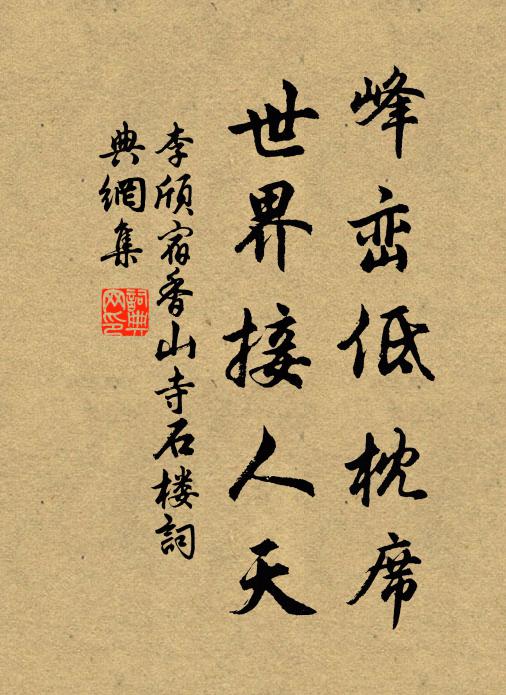 峰峦低枕席
世界接人天
李頎宿香山寺石楼詞
典網集
詞典网印